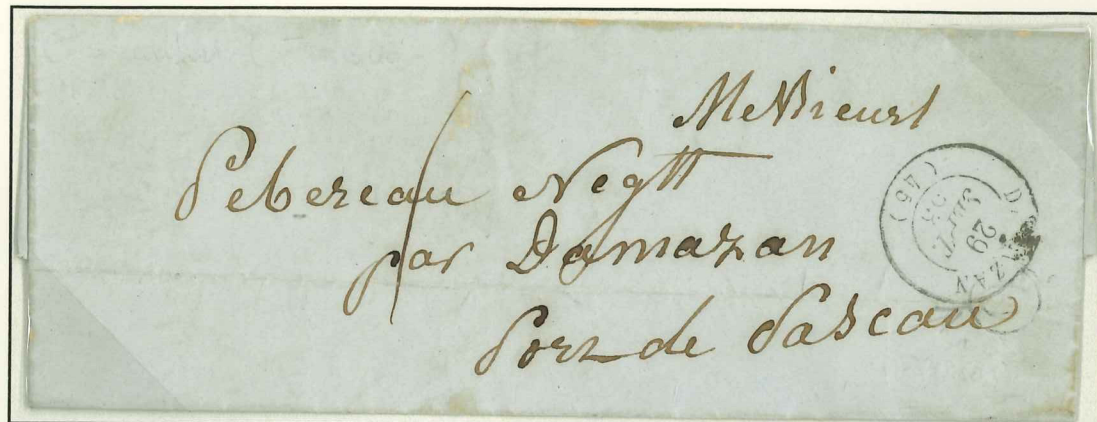 Messieurs
Pebereau Negtt
par Damazan
Port de Pascau
DAMAZAN
29
SEPT.
55
(45)